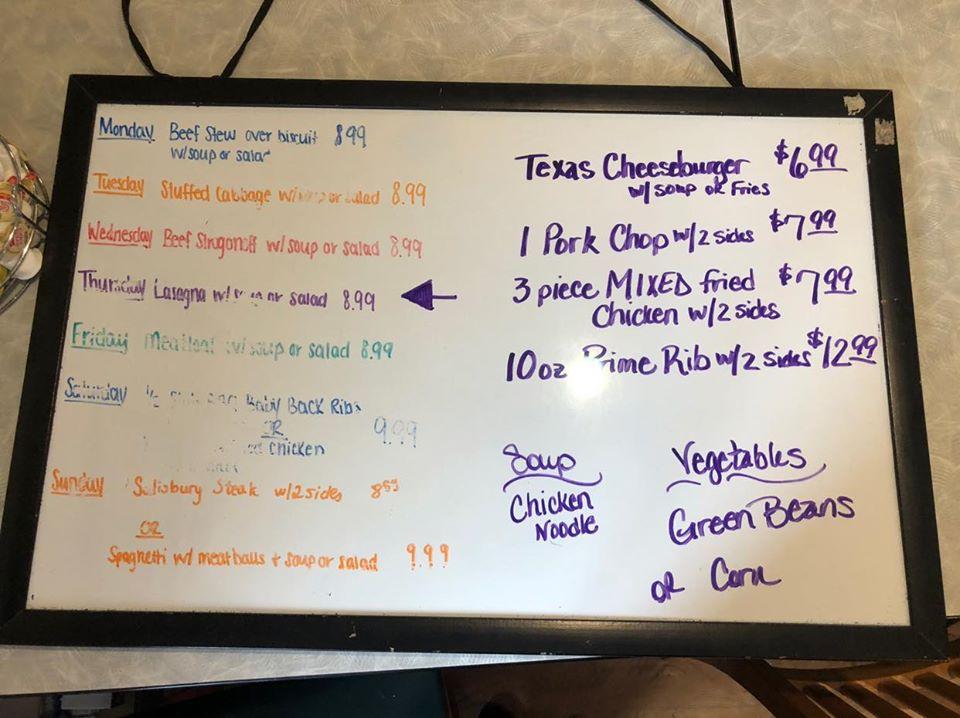 Monday Beef Stew over biscuit 8.99
w/soup or salad
Tuesday Stuffed Cabbage w/ or salad 8.99
Wednesday Beef Strugonoff w/soup or salad 8.99
Thursday Lasagna w/ or salad 8.99
Friday Meatloaf w/soup or salad 8.99
Saturday 1/2 Baby Back Ribs
OR 9.99
Chicken
Sunday Salisbury Steak w/2 sides 8.99
OR
Spaghetti w/ meatballs + soup or salad 9.99
Texas Cheeseburger $6.99
w/ soup or Fries
1 Pork Chop w/2 sides $7.99
3 piece MIXED fried $7.99
Chicken w/2 sides
10 oz Prime Rib w/2 sides $12.99
Soup
Chicken
Noodle
Vegetables
Green Beans
or Corn